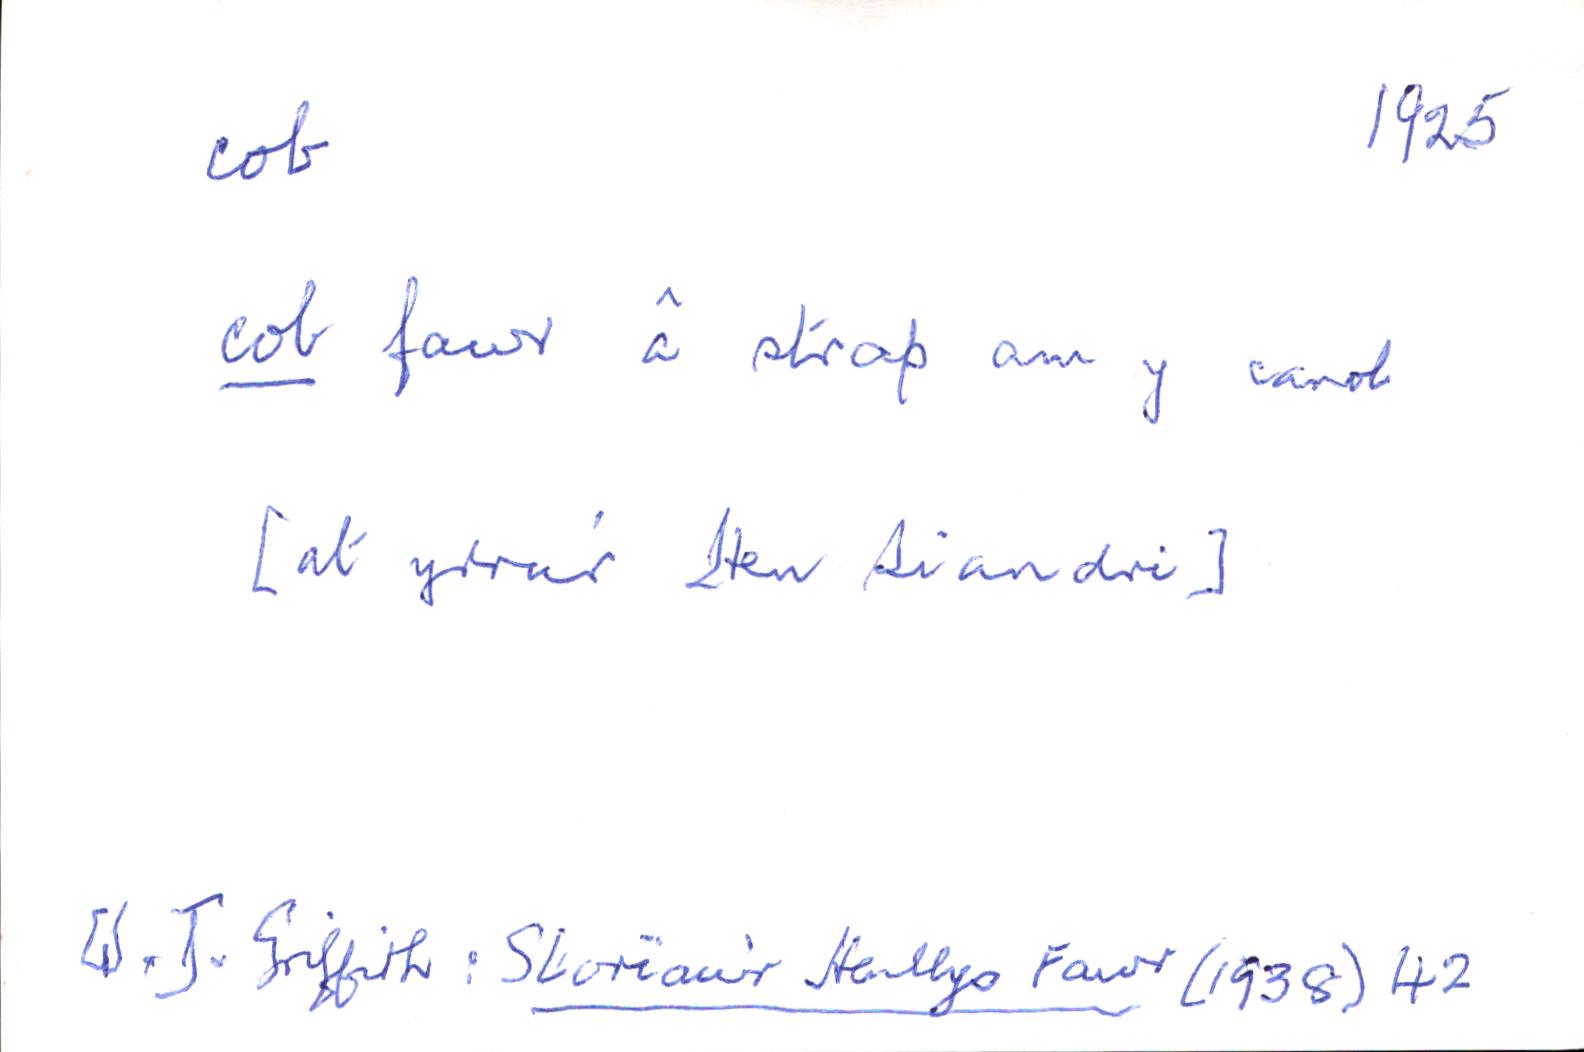 cob 1925
cob fawr â strap am y canol
[at yrru'r Hen Siandri]
W. J. Griffith : Storïau'r Henllys Fawr (1938) 42